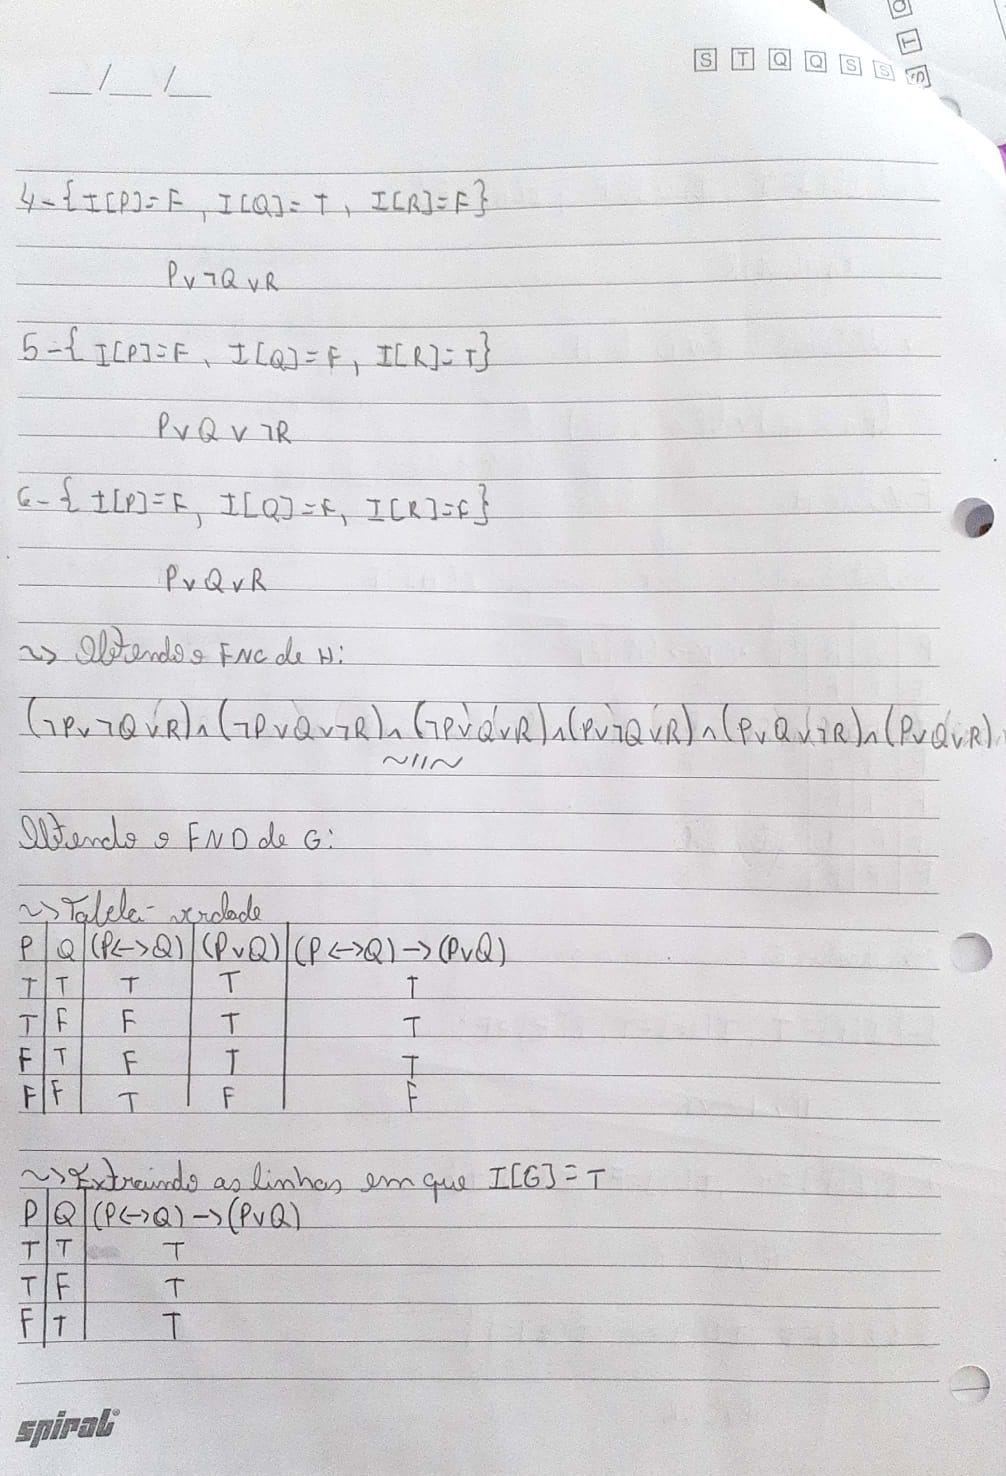 __/__/__
S T Q Q S S
4-{I[P]=F, I[Q]=T, I[R]=F}
P∨¬Q∨R
5-{I[P]=F, I[Q]=F, I[R]=T}
P∨Q∨¬R
6-{I[P]=F, I[Q]=F, I[R]=F}
P∨Q∨R
~> Obtendo o FNC de H:
(¬P∨¬Q∨R)∧(¬P∨Q∨¬R)∧(¬P∨Q∨R)∧(P∨¬Q∨R)∧(P∨Q∨¬R)∧(P∨Q∨R)
~//~
Obtendo o FND de G:
~> Tabela-verdade
P | Q | (P<->Q) | (P∨Q) | (P<->Q)->(P∨Q)
T | T | T | T | T
T | F | F | T | T
F | T | F | T | T
F | F | T | F | F
~> Extraindo as linhas em que I[G]=T
P | Q | (P<->Q)->(P∨Q)
T | T | T
T | F | T
F | T | T
spiral®